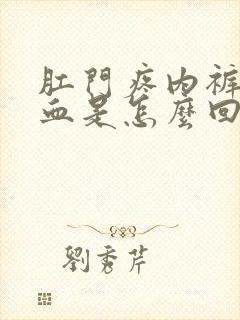 肛門疼內褲
血是怎麼回
劉秀芹